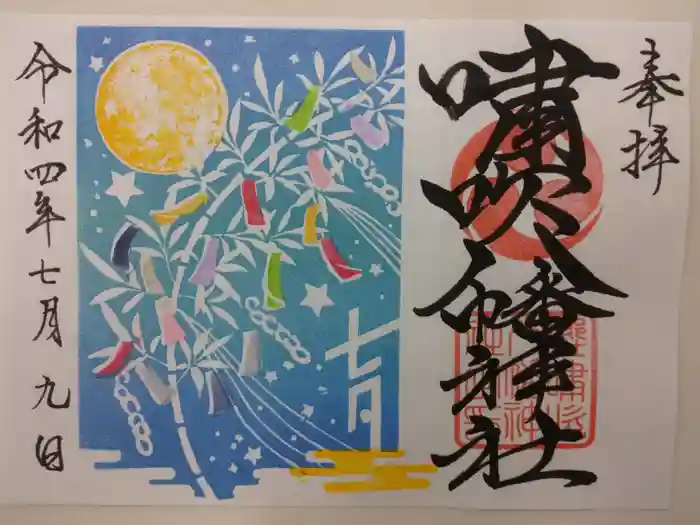 奉拝
嘯吹八幡神社
七月
令和四年七月九日